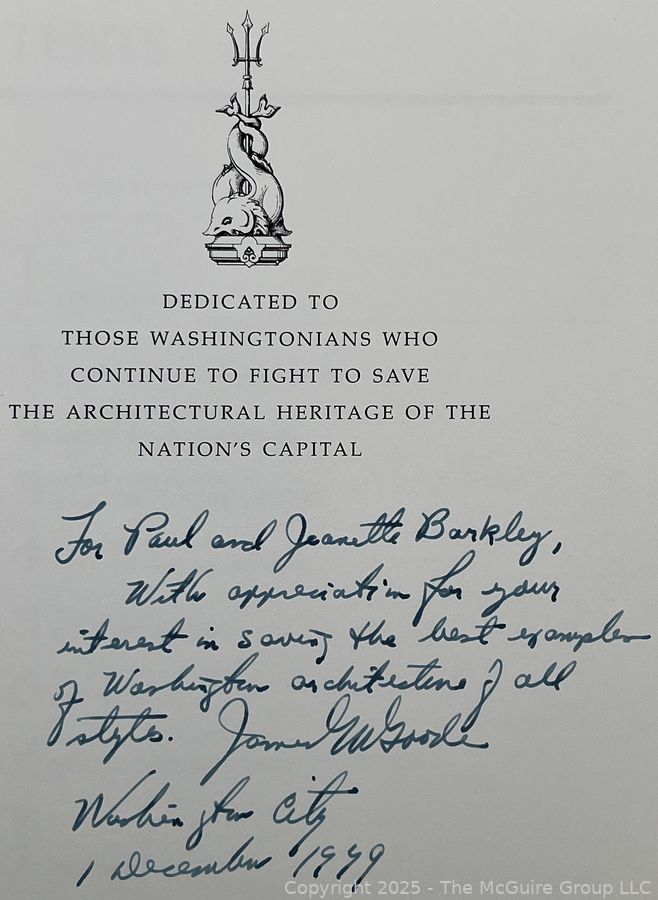 DEDICATED TO
THOSE WASHINGTONIANS WHO
CONTINUE TO FIGHT TO SAVE
THE ARCHITECTURAL HERITAGE OF THE
NATION'S CAPITAL
For Paul and Jeanette Barkley,
With appreciation for your
interest in saving the best examples
of Washington architecture of all
styles. James M Goode
Washington City
1 December 1979
Copyright 2025 - The McGuire Group LLC